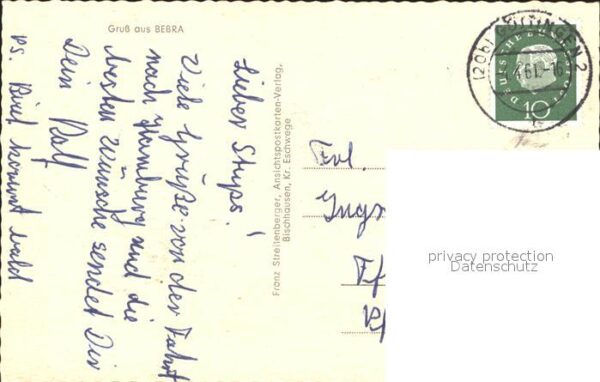 Gruß aus BEBRA
Lieber Stups!
Viele Grüße von der Fahrt
nach Hamburg und die
besten Wünsche sendet Dir
Dein Rolf
PS. Brief kommt bald
Franz Streitenberger, Ansichtspostkarten-Verlag,
Bischhausen, Kr. Eschwege
(20b) GÖTTINGEN 2
61.-16
DEUTSCHE BUNDESPOST
10
Frl.
privacy protection
Datenschutz